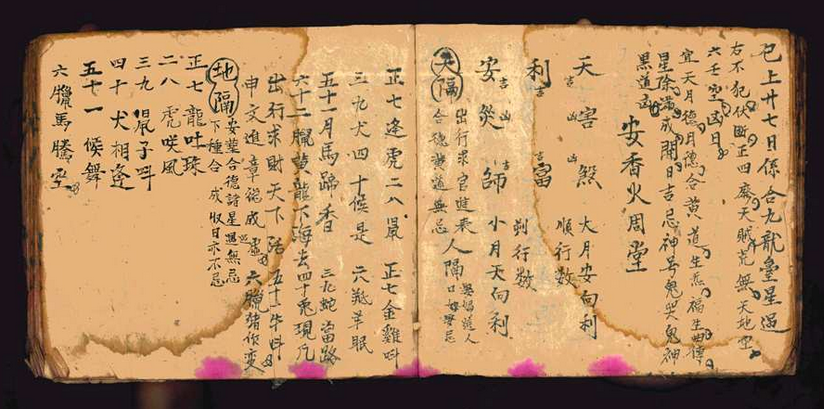 已上廿七日係合九龍臺星過
右不犯伏斷正四廢天賊荒無天地空
六壬空凶日
宜天月德月德合黄道生炁福生曲傳
星除滿成開日吉忌神号鬼哭鬼神
黑道凶
安香火周堂
天害煞 大月安向利
吉凶凶 順行数
利 富 剃行数
吉 吉
安災師 小月天向利
吉凶吉
天隔 出行求官進表 人隔
合德黄道無忌
正七逢虎二八鼠 正七金雞叫
三九犬四十候是 六羝羊眠
五十一月馬蹄香 三九蛇當路
六十二臘黄龍下海去四十兔現凡
出行求財天下活 五十一牛吽
申文進章福成虛 六臘猪作变
地隔 安葬合德諸星照無忌
下種合成収日亦不忌
正七龍吐珠
二八虎咲風
三九鼠子叫
四十犬相逢
五十一候舞
六臘馬騰空